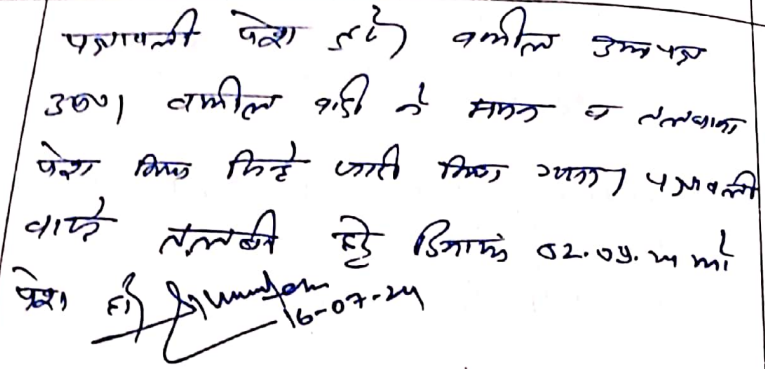 पत्रावली पेश हुई। वकील उभयपक्ष
उप०। वकील वादी ने सम्मन व तलवाना
पेश किये जिन्हे जारी किया गया। पत्रावली
वास्ते तलबी हेतु दिनांक 02.09.24 को
पेश हो।
16-07-24